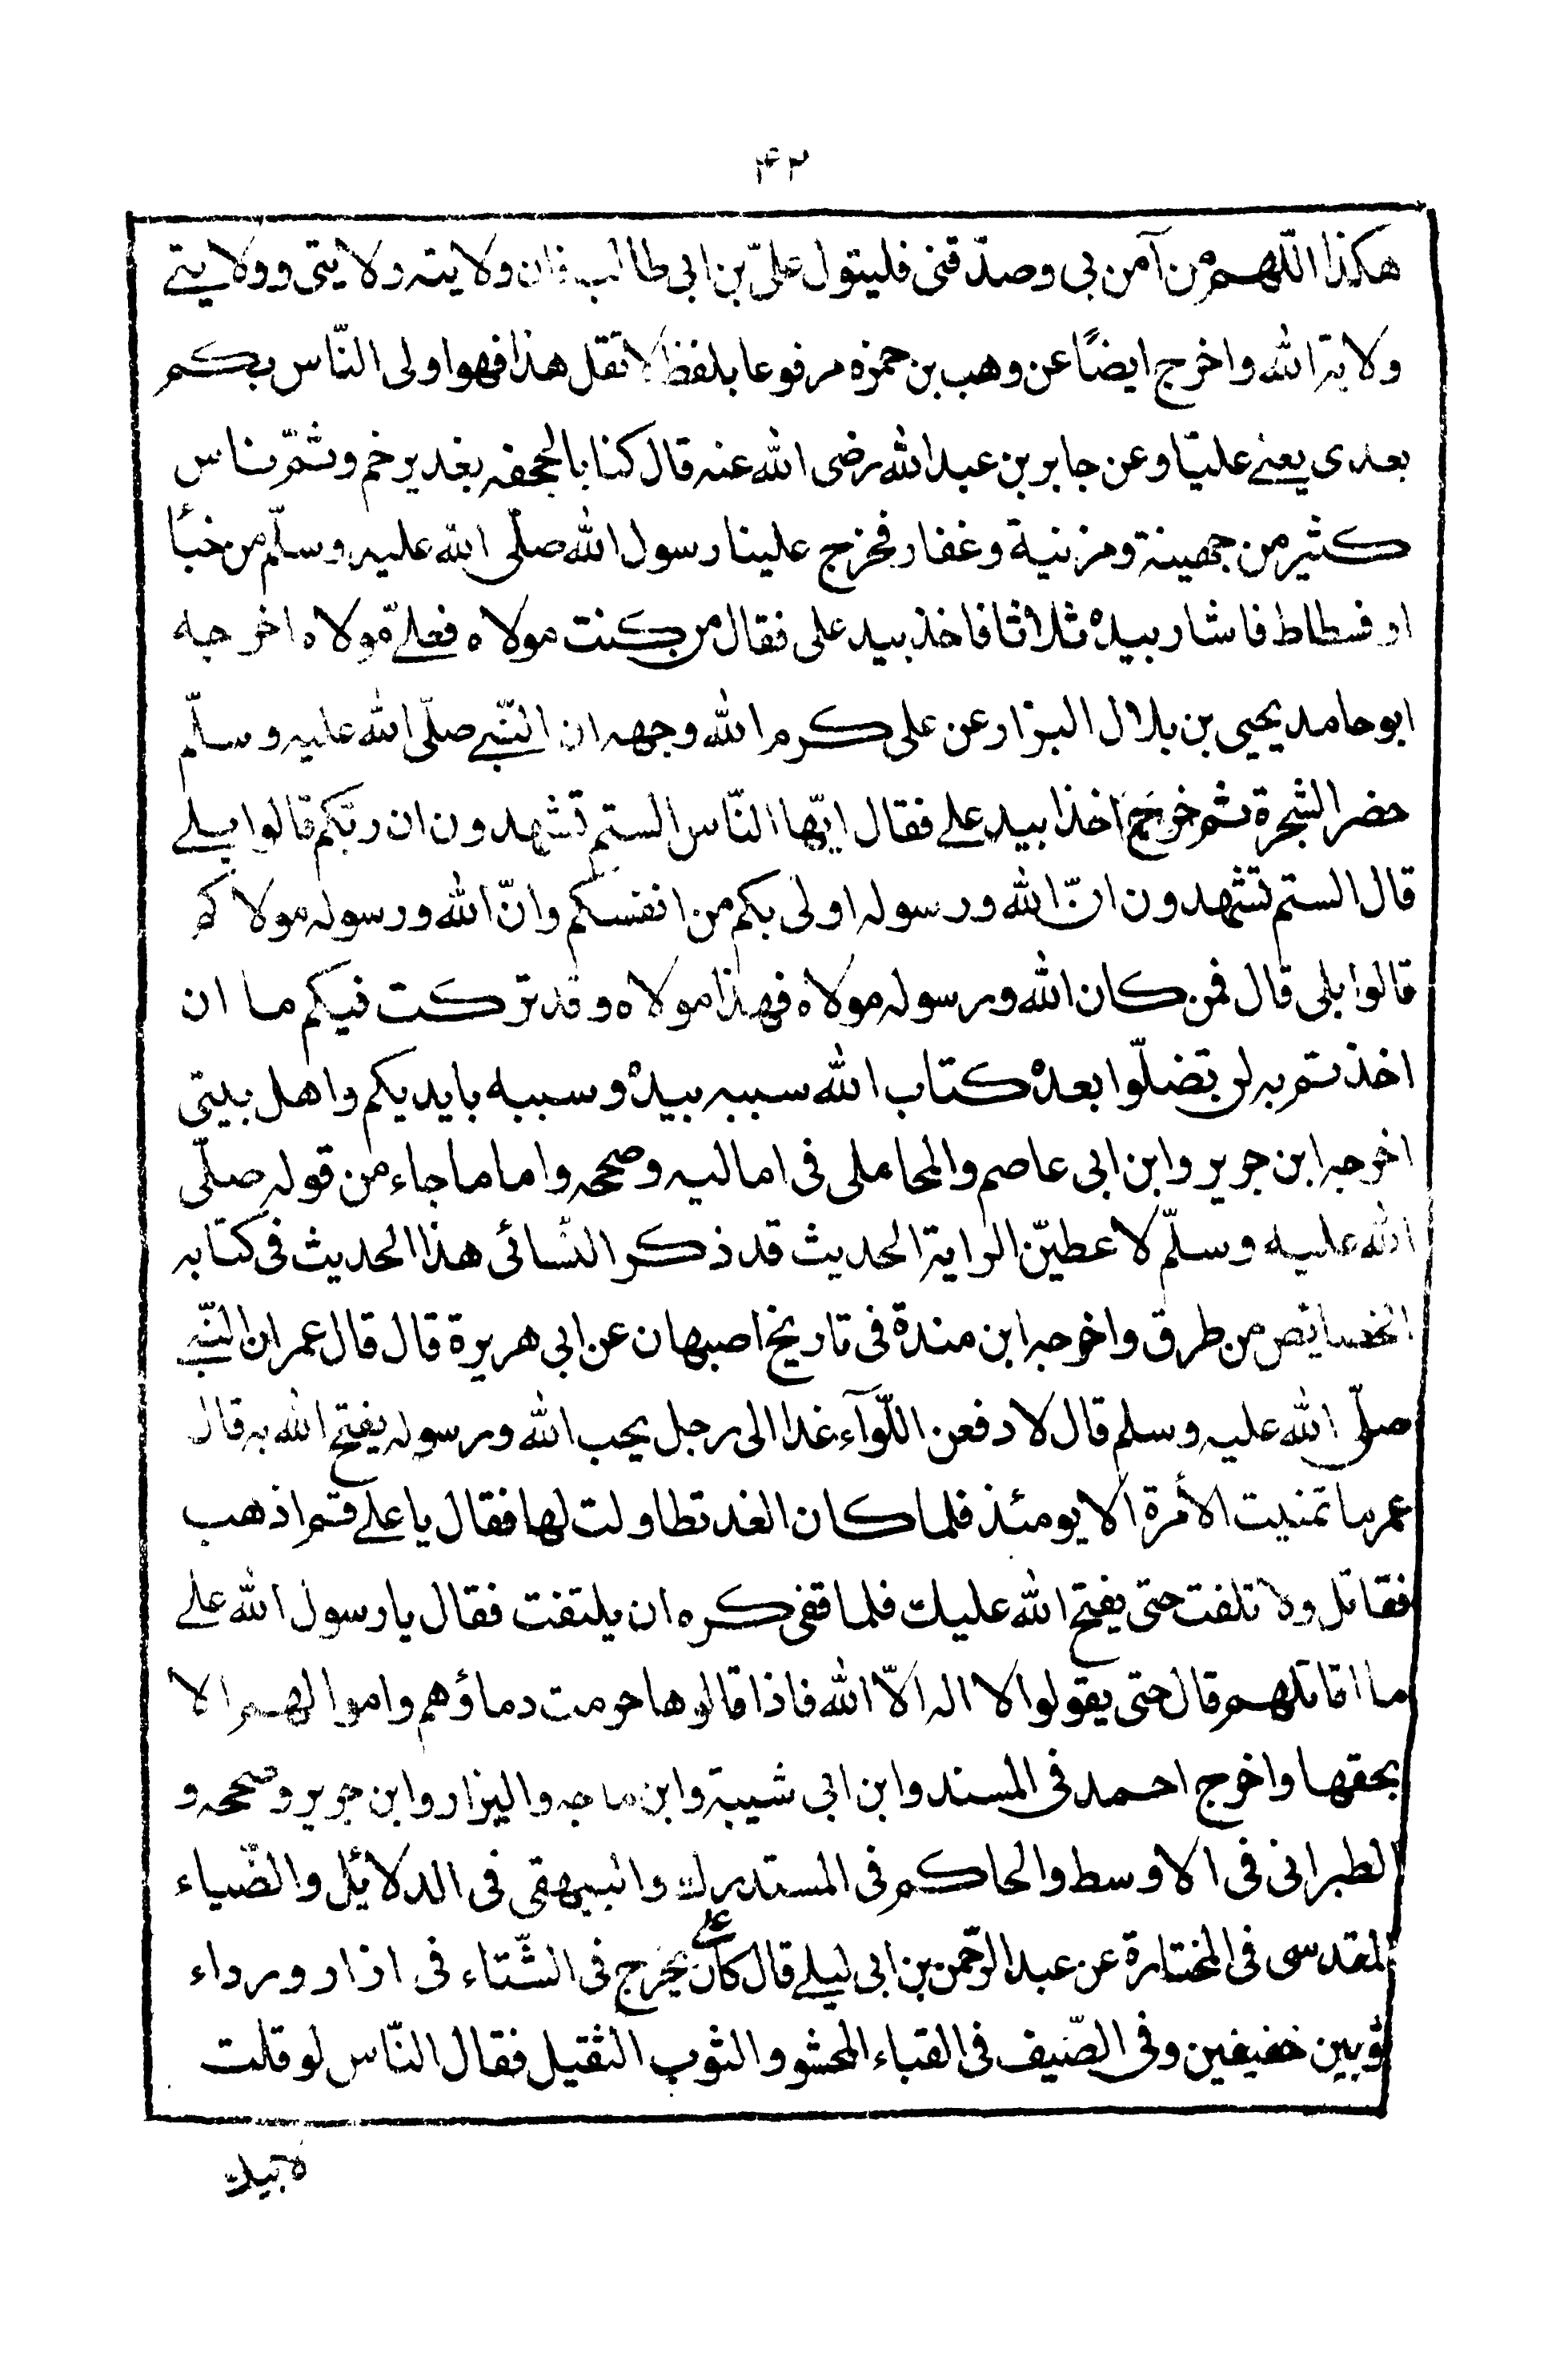 ۴۲
هكذا اللّهم من آمن بي وصدّقني فليتول علىّ بن ابي طالب فان ولايته ولايتى وولايتے
ولاية الله واخرج ايضًا عن وهب بن حمزه مرفوعا بلفظ لا تقل هذا فهو اولى النّاس بكم
بعدى يعنے عليّا وعن جابر بن عبدالله رضى الله عنه قال كنا بالجحفه بغدير خم وثمّ ناس
كثير من جهينة ومزنية وغفار فخرج علينا رسول الله صلّى الله عليه وسلّم من خبأ
او فسطاط فاشار بيده ثلاثا فاخذ بيد على فقال من كنت مولاه فعلےّ مولاه اخرجه
ابو حامد يحيى بن بلال البزار عن على كرم الله وجهه ان النّبے صلّى الله عليه وسلّم
حضر الشجرة ثم خرج اخذا بيد علے فقال ايّها النّاس الستم تشهدون ان ربّكم قالوا بلے
قال الستم تشهدون انّ الله ورسوله اولى بكم من انفسكم وانّ الله ورسوله مولاكم
قالوا بلى قال فمن كان الله ورسوله مولاه فهذا مولاه وقد تركت فيكم ما ان
اخذتم به لن تضلّوا بعده كتاب الله سببه بيده وسببه بايديكم واهل بيتى
اخرجه ابن جرير وابن ابى عاصم والمحاملى فى اماليه وصححه واما ما جاء من قوله صلّى
الله عليه وسلّم لاعطينّ الراية الحديث قد ذكر النسائى هذا الحديث فى كتابه
الخصايص من طرق واخرجه ابن مندة فى تاريخ اصبهان عن ابي هريرة قال قال عمر ان النّبے
صلّى الله عليه وسلم قال لادفعن اللّوآء غدا الى رجل يحب الله ورسوله يفتح الله به قال
عمر ما تمنيت الأمرة الا يومئذ فلما كان الغد تطاولت لها فقال يا علے قم اذهب
فقاتل ولا تلفت حتى يفتح الله عليك فلما قفى كره ان يلتفت فقال يا رسول الله علے
ما اقاتلهم قال حتى يقولوا لا اله الّا الله فاذا قالوها حرمت دماؤهم واموالهم الا
بحقها واخرج احمد فى المسند وابن ابي شيبة وابن ماجه والبزار وابن جرير وصححه و
الطبرانى فى الاوسط والحاكم فى المستدرك والبيهقى فى الدلائل والضّياء
المقدسى فى المختارة عن عبد الرّحمن بن ابى ليلے قال كان علے يخرج فى الشّتاء فى ازار ورداء
ثوبين خفيفين وفى الصّيف فى القباء المحشو والثوب الثقيل فقال النّاس لو قلت
لابيك